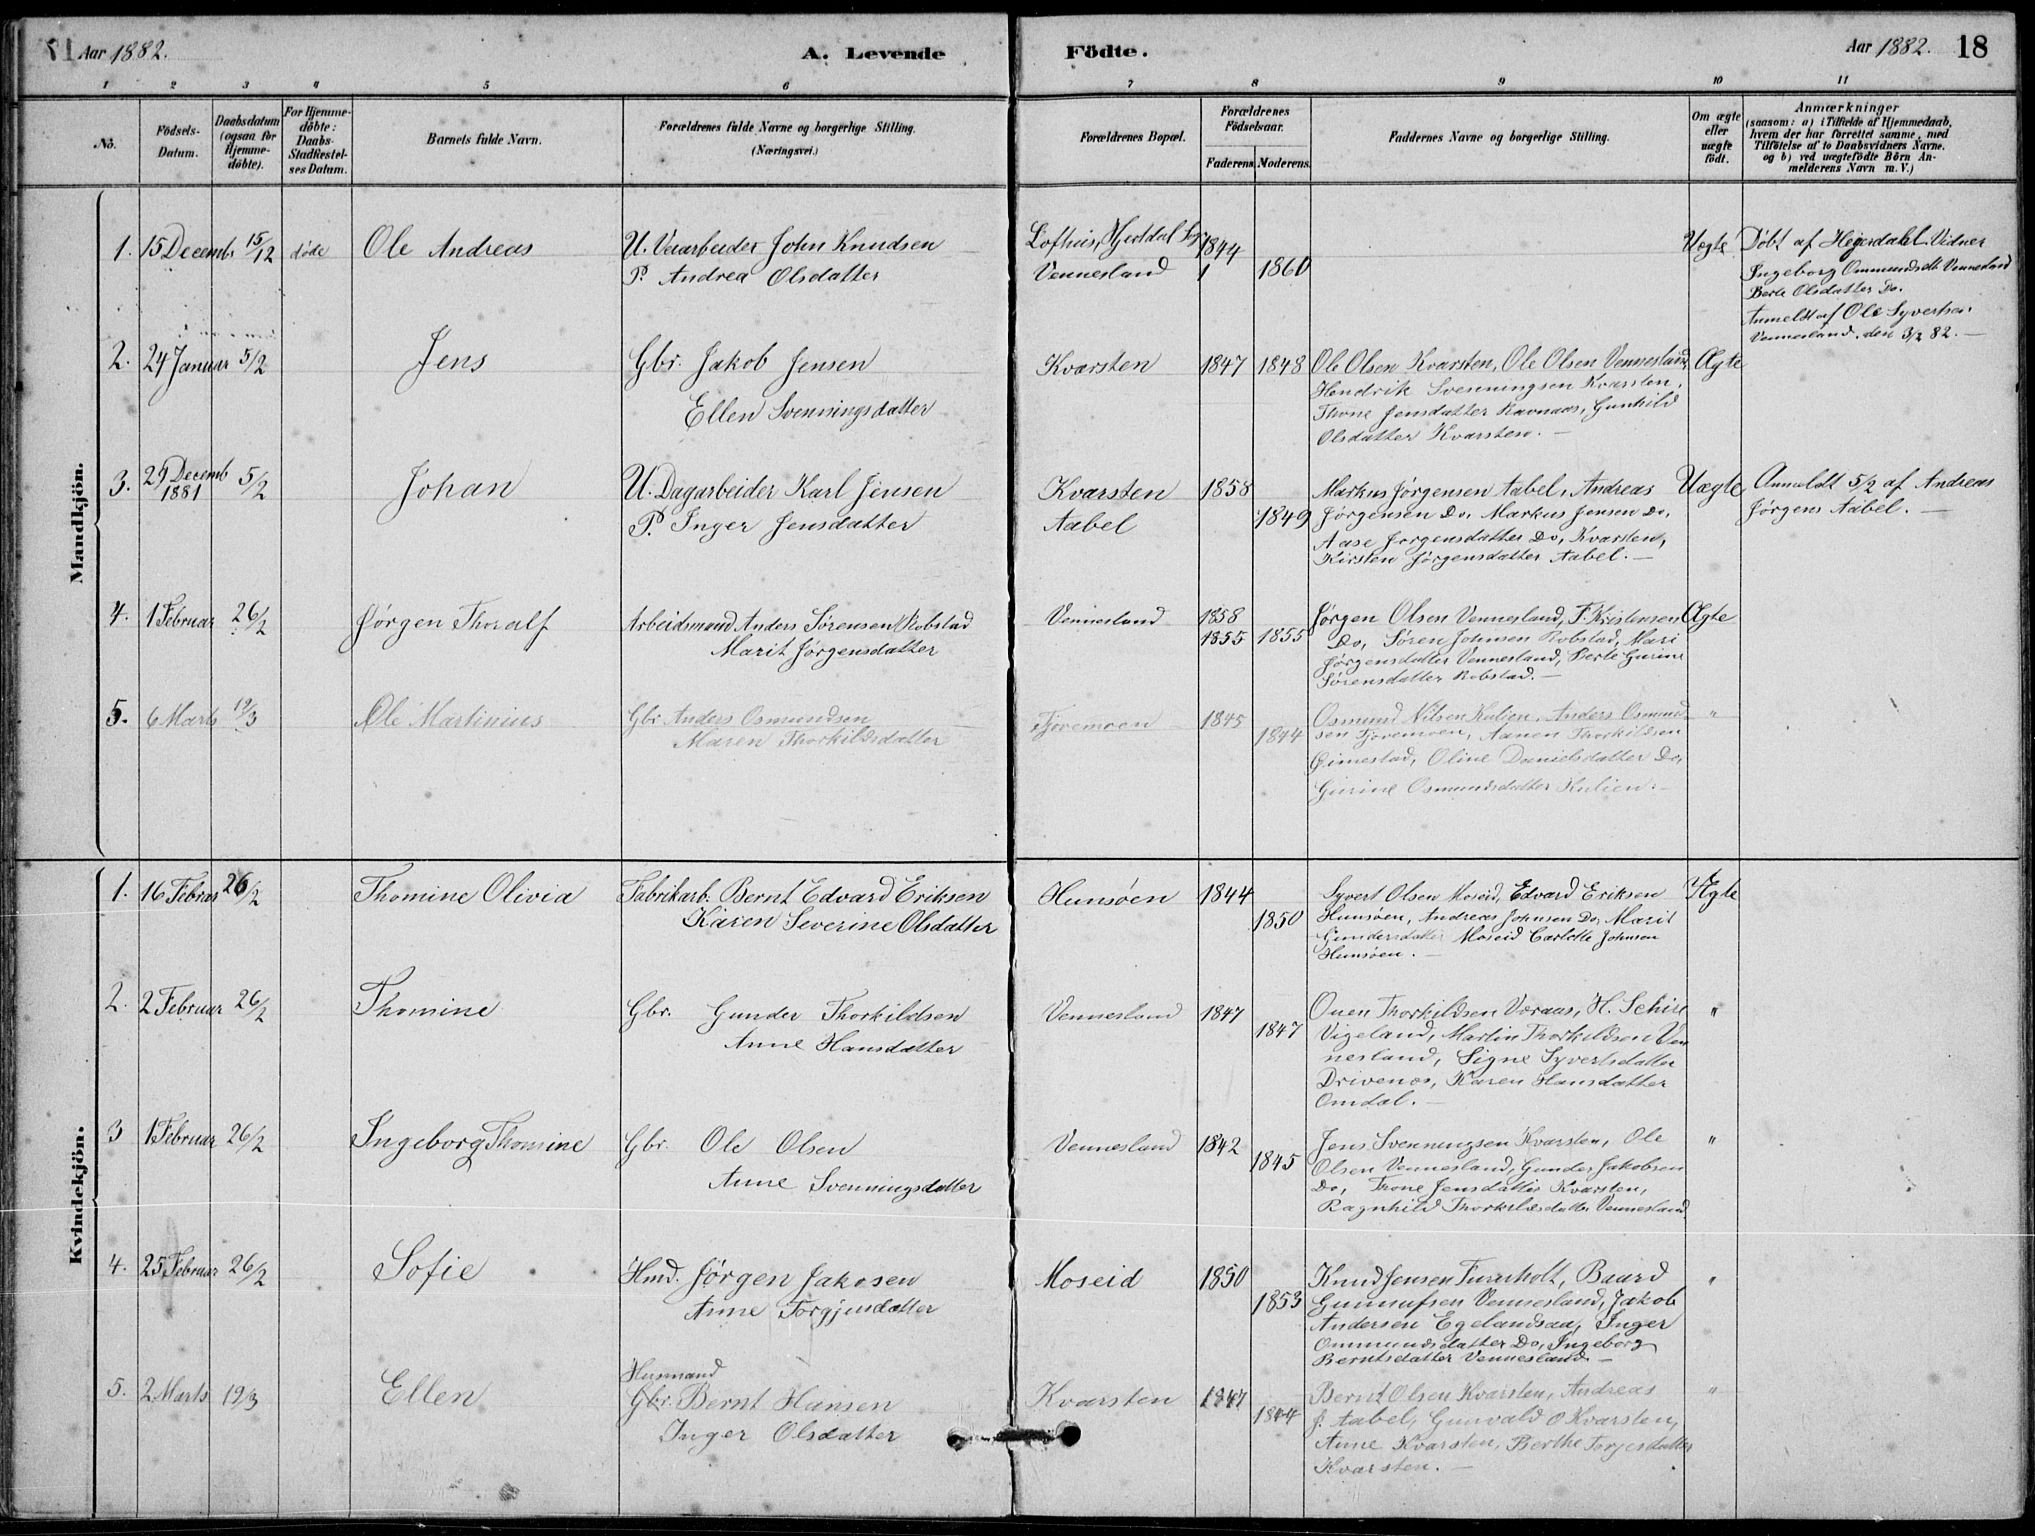 17 Aar 1882. A. Levende Födte. Aar 1882. 18
1 2 3 4 5 6 7 8 9 10 11
No.
Födsels-
Datum.
Daabsdatum
(ogsaa for
Hjemme-
döbte).
For Hjemme-
döbte:
Daabs-
Stadfæstel-
ses Datum.
Barnets fulde Navn.
Forældrenes fulde Navne og borgerlige Stilling.
(Næringsvei.)
Forældrenes Bopæl.
Forældrenes
Födselsaar.
Faderens. Moderens.
Faddernes Navne og borgerlige Stilling.
Om ægte
eller
uægte
födt.
Anmærkninger
(saasom: a) i Tilfælde af Hjemmedaab,
hvem der har forrettet samme, med
Tilföielse af to Daabsvidners Navne.
og b) ved uægtefödte Börn An-
melderens Navn m. V.)
Mandkjön.
1. 15 Decembr 15/12 döde Ole Andreas
U. Veiarbeider John Knudsen
P. Andrea Olsdatter
Lofthus, Hjertdal
Vennesland
1844
1860
Uægte
Døbt af Hegerdahl. Vidner
Ingeborg Ommundsdtr Vennesland
Berte Olsdatter Do.
Anmeldt af Ole Syvertsen
Vennesland, den 3/2 82. —
2. 24 Januar 5/2 Jens
Gbr. Jakob Jensen
Ellen Svenningsdatter
Kvarsten 1847 1848
Ole Olsen Kvarsten, Ole Olsen Vennesland,
Hendrik Svenningsen Kvarsten,
Thone Jensdatter Ravnaas, Gunhild
Olsdatter Kvarsten. —
Ægte
3. 29 Decemb
1881
5/2 Johan
U. Dagarbeider Karl Jensen
P. Inger Jensdatter
Kvarsten
Aabel
1858
1849
Markus Jørgensen Aabel, Andreas
Jørgensen Do, Markus Jensen Do,
Aase Jørgensdatter Do, Kvarsten,
Kirsten Jørgensdatter Aabel. —
Uægte
Anmeldt 5/2 af Andreas
Jørgens Aabel. —
4. 1 Februar 26/2 Jørgen Thoralf
Arbeidsmand Anders Sørensen Robstad
Marit Jørgensdatter
Vennesland
1858
1855 1855
Jørgen Olsen Vennesland, T. Kristensen
Do, Søren Johnsen Robstad, Mari
Jørgensdatter Vennesland, Berte Gurine
Sørensdatter Robstad. —
Ægte
5. 6 Marts 19/3 Ole Martinius
Gbr. Anders Osmundsen
Maren Thorkildsdatter
Fjoremoen 1845
1844
Osmund Nilsen Kulien, Anders Osmund-
sen Fjoremoen, Aanen Thorkildsen
Eimestad, Oline Danielsdatter Do,
Gurine Osmundsdatter Kulien. —
"
Kvindekjön.
1. 16 Februar 26/2 Thomine Olivia
Fabrikarb. Bernt Edvard Eriksen
Karen Severine Olsdatter
Hunsøen 1844
1850
Syvert Olsen Moseid, Edvard Eriksen
Hunsøen, Andreas Johnsen Do, Marit
Gundersdatter Moseid Carlotte Johnsen
Hunsøen. —
Ægte
2. 2 Februar 26/2 Thomine
Gbr. Gunder Thorkildsen
Anne Hansdatter
Vennesland 1847
1847
Ouen Thorkildsen Veraas, H. Schie
Vigeland, Martin Thorkildsen Ven
nesland, Signe Syvertsdatter
Drivenes, Karen Hansdatter
Omdal. —
"
3 1 Februar 26/2 Ingeborg Thomine
Gbr. Ole Olsen
Anne Svenningsdatter
Vennesland 1842
1845
Jens Svenningsen Kvarsten, Ole
Olsen Vennesland, Gunder Jakobsen
Do, Trone Jensdatter Kvarsten,
Ragnhild Thorkildsdatter Vennesland,
"
4. 25 Februar 26/2 Sofie
Hmd. Jørgen Jakosen
Anne Torgjusdatter
Moseid 1850
1853
Knud Jensen Fureholt, Baard
Gunnufsen Vennesland, Jakob
Andersen Egelandsaa, Inger
Ommundsdatter Do, Ingeborg
Berntsdatter Vennesland —
"
5. 2 Marts 19/3 Ellen
Husmand
Gbr. Bernt Hansen
Inger Olsdatter
Kvarsten 1847
1844
Bernt Olsen Kvarsten, Andreas
J. Aabel, Gunvald O Kvarsten,
Anne Kvarsten, Berthe Torjesdatter
Kvarsten. —
"